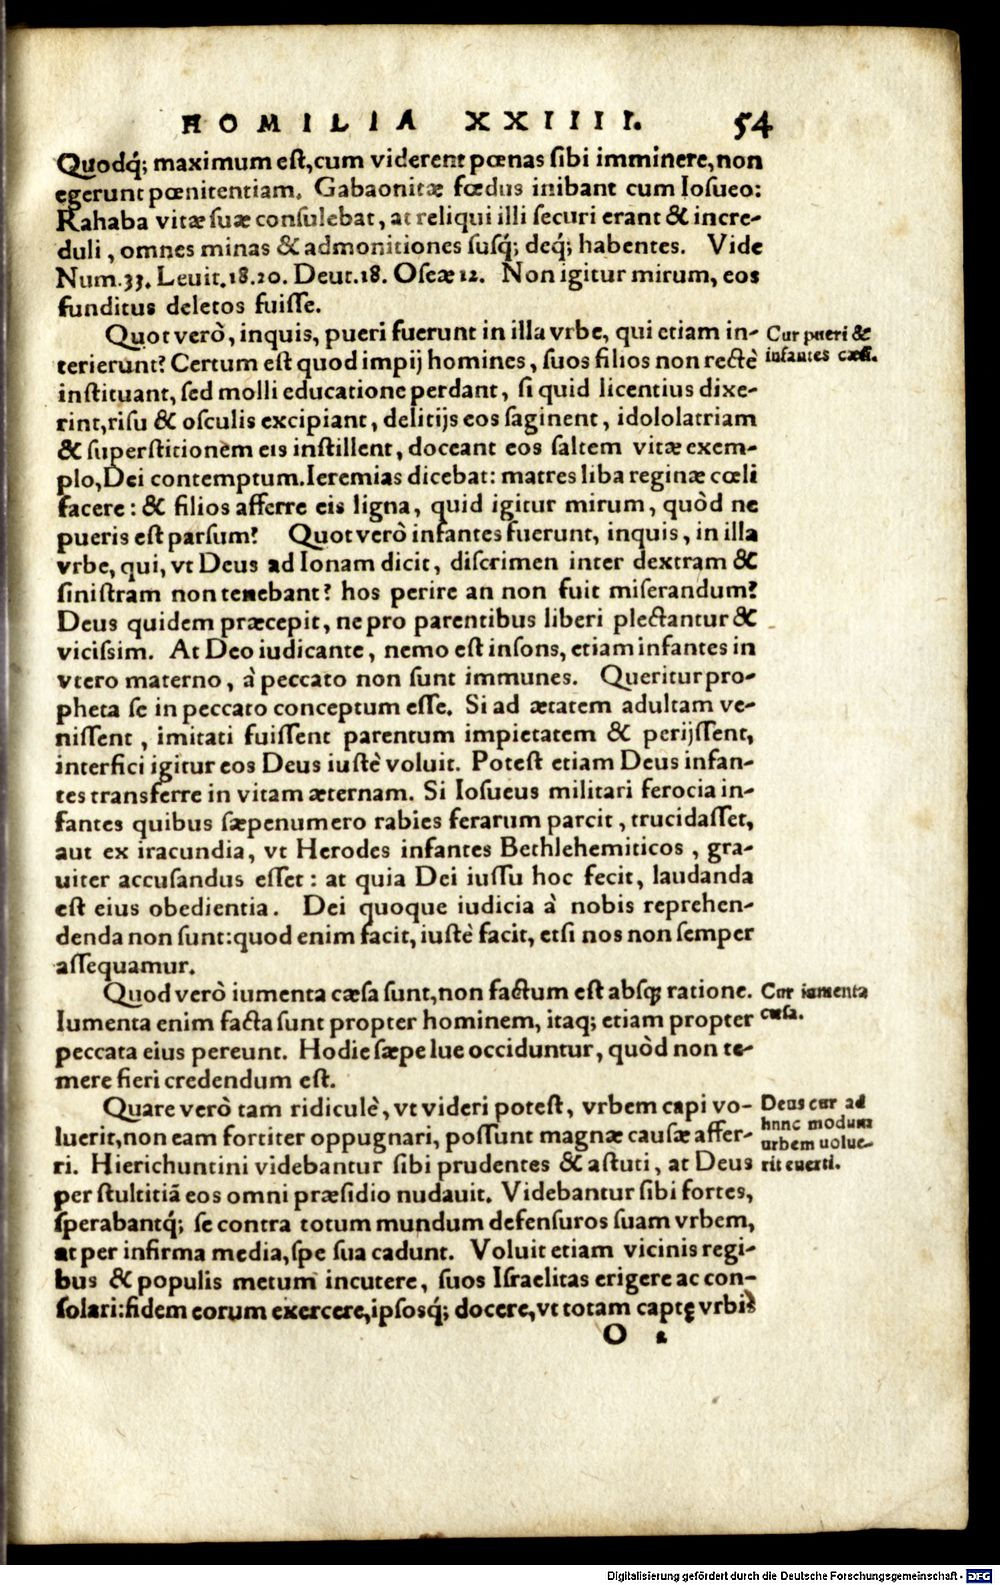 HOMILIA XXIIII. 54
Quodq́; maximum eſt, cum viderent pœnas ſibi imminere, non
egerunt pœnitentiam. Gabaonitæ fœdus inibant cum Ioſueo:
Rahaba vitæ ſuæ conſulebat, at reliqui illi ſecuri erant & incre-
duli, omnes minas & admonitiones ſuſq́; deq́; habentes. Vide
Num. 33. Leuit. 18. 20. Deut. 18. Oſeæ 12. Non igitur mirum, eos
funditus deletos fuiſſe.
Quot verò, inquis, pueri fuerunt in illa vrbe, qui etiam in-
Cur pueri &
terierunt? Certum eſt quod impij homines, ſuos filios non rectè
infantes cæſi.
inſtituant, ſed molli educatione perdant, ſi quid licentius dixe-
rint, riſu & osculis excipiant, delitijs eos ſaginent, idololatriam
& ſuperſtitionem eis inſtillent, doceant eos ſaltem vitæ exem-
plo, Dei contemptum. Ieremias dicebat: matres liba reginæ cœli
facere: & filios afferre eis ligna, quid igitur mirum, quòd ne
pueris eſt parſum? Quot verò infantes fuerunt, inquis, in illa
vrbe, qui, vt Deus ad Ionam dicit, diſcrimen inter dextram &
ſiniſtram non tenebant? hos perire an non fuit miſerandum?
Deus quidem præcepit, ne pro parentibus liberi plectantur &
viciſſim. At Deo iudicante, nemo eſt inſons, etiam infantes in
vtero materno, à peccato non ſunt immunes. Queritur pro-
pheta ſe in peccato conceptum eſſe. Si ad ætatem adultam ve-
niſſent, imitati fuiſſent parentum impietatem & perijſſent,
interfici igitur eos Deus iuſtè voluit. Poteſt etiam Deus infan-
tes transferre in vitam æternam. Si Ioſueus militari ferocia in-
fantes quibus ſæpenumero rabies ferarum parcit, trucidaſſet,
aut ex iracundia, vt Herodes infantes Bethlehemiticos, gra-
uiter accuſandus eſſet: at quia Dei iuſſu hoc fecit, laudanda
eſt eius obedientia. Dei quoque iudicia à nobis reprehen-
denda non ſunt: quod enim facit, iuſtè facit, etſi nos non ſemper
aſſequamur.
Quod verò iumenta cæſa ſunt, non factum eſt abſq; ratione.
Cur iumenta
Iumenta enim facta ſunt propter hominem, itaq; etiam propter
cæſa.
peccata eius pereunt. Hodie ſæpe lue occiduntur, quòd non te-
mere fieri credendum eſt.
Quare verò tam ridiculè, vt videri poteſt, vrbem capi vo-
Deus cur ad
luerit, non eam fortiter oppugnari, poſſunt magnæ cauſæ affer-
hunc modum
urbem uolue-
ri. Hierichuntini videbantur ſibi prudentes & aſtuti, at Deus
rit euerti.
per ſtultitiã eos omni præſidio nudauit. Videbantur ſibi fortes,
ſperabantq́; ſe contra totum mundum defenſuros ſuam vrbem,
at per infirma media, ſpe ſua cadunt. Voluit etiam vicinis regi-
bus & populis metum incutere, ſuos Iſraelitas erigere ac con-
ſolari: fidem eorum exercere, ipſosq́; docere, vt totam captę vrbis
O 2
Digitalisierung gefördert durch die Deutsche Forschungsgemeinschaft - DFG